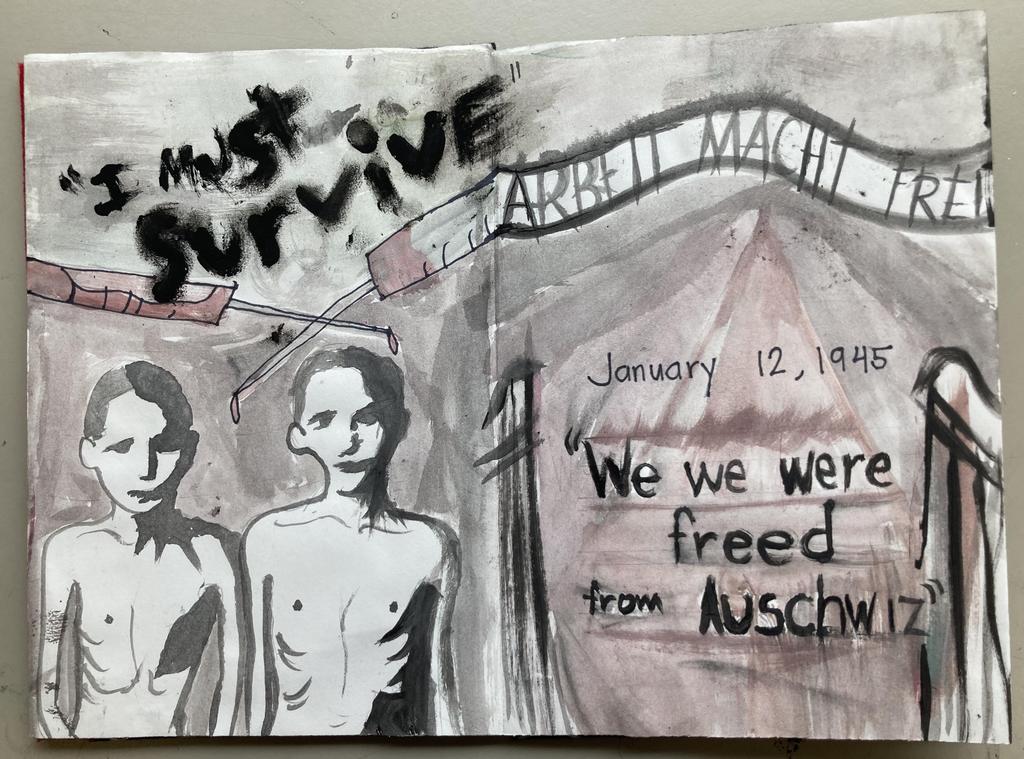 "I MUST
SURVIVE"
ARBEIT MACHT FREI
January 12, 1945
"We we were
freed
from AUSCHWIZ"